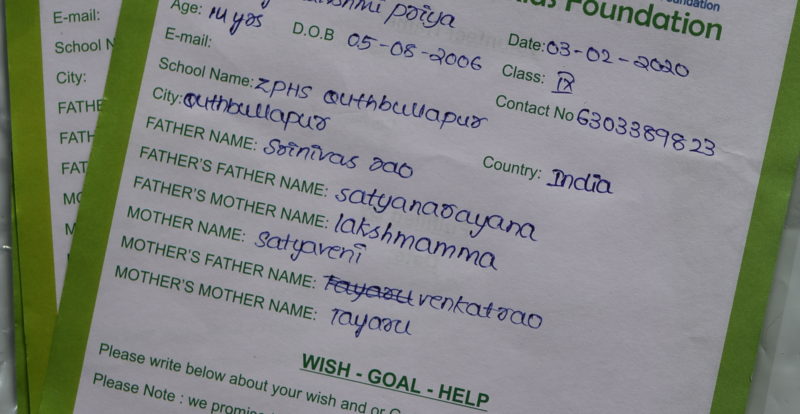 Foundation
Foundation
priya
Age: 14 yrs
D.O.B 05-08-2006
Date: 03-02-2020
E-mail:
Class: IX
School Name: ZPHS Quthbullapur
Contact No 6303389823
City: Quthbullapur
FATHER NAME: Srinivas rao
Country: India
FATHER'S FATHER NAME: satyanarayana
FATHER'S MOTHER NAME: lakshmamma
MOTHER NAME: Satyaveni
MOTHER'S FATHER NAME: Tayaru venkatrao
MOTHER'S MOTHER NAME: Tayaru
WISH - GOAL - HELP
Please write below about your wish and or
Please Note : we
E-mail:
School
City: